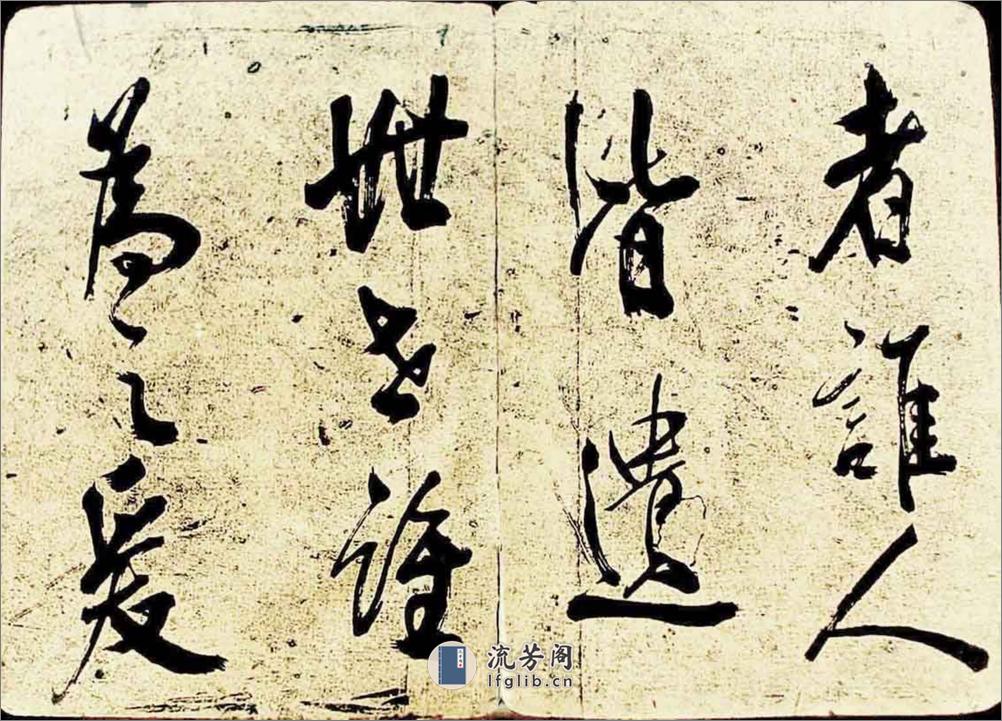 者誰人
皆遺
世誰
為之爰
流芳阁
lfglib.cn